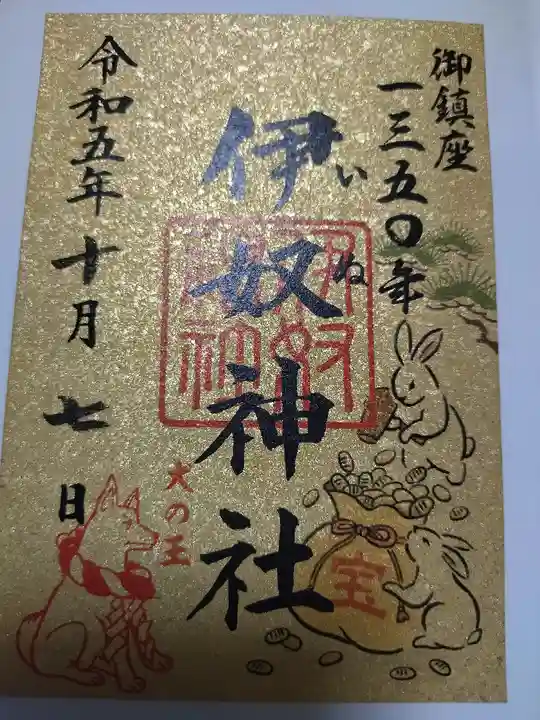 御鎮座
一三五〇年
伊奴神社
いぬ
伊奴
神社
犬の王
宝
令和五年十月七日